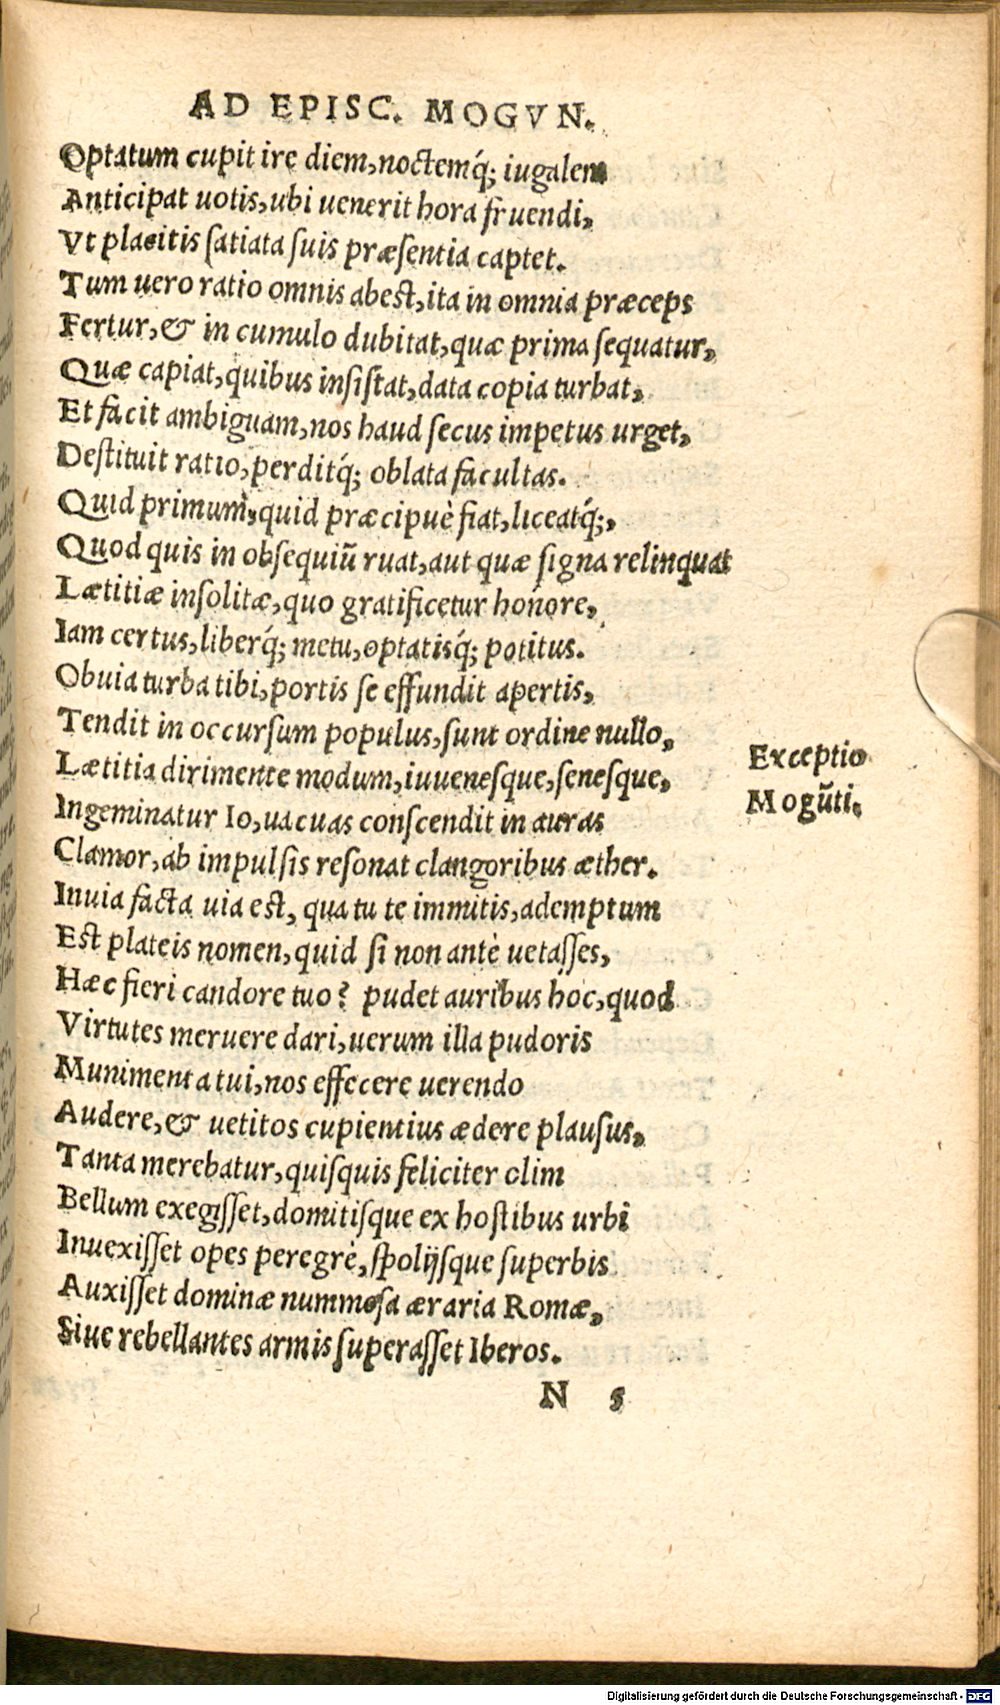 AD EPISC. MOGVN.
Optatum cupit ire diem, noctemq́; iugalem
Anticipat uotis, ubi uenerit hora fruendi,
Vt placitis ſatiata ſuis præſentia captet.
Tum uero ratio omnis abest, ita in omnia præceps
Fertur, & in cumulo dubitat, quæ prima ſequatur,
Quæ capiat, quibus inſiſtat, data copia turbat,
Et facit ambiguam, nos haud ſecus impetus urget,
Deſtituit ratio, perditq́; oblata facultas.
Quid primum, quid præcipuè fiat, liceatq́;,
Quod quis in obſequiũ ruat, aut quæ ſigna relinquat
Lætitiæ inſolitæ, quo gratificetur honore,
Iam certus, liberq́; metu, optatisq́; potitus.
Obuia turba tibi, portis ſe effundit apertis,
Tendit in occurſum populus, ſunt ordine nullo,
Lætitia dirimente modum, iuuenesque, ſenesque,
Ingeminatur Io, uacuas conſcendit in auras
Clamor, ab impulſis reſonat clangoribus æther.
Inuia facta uia est, qua tu te immitis, ademptum
Est plateis nomen, quid ſi non antè uetaſſes,
Hæc fieri candore tuo? pudet auribus hoc, quod
Virtutes meruere dari, uerum illa pudoris
Munimenta tui, nos effecere uerendo
Audere, & uetitos cupientius ædere plauſus,
Tanta merebatur, quiſquis feliciter olim
Bellum exegiſſet, domitiſque ex hoſtibus urbi
Inuexiſſet opes peregrè, ſpolijſque ſuperbis
Auxiſſet dominæ nummoſa æraria Romæ,
Siue rebellantes armis ſuperaſſet Iberos.
N 5
Exceptio
Mogũti.
Digitalisierung gefördert durch die Deutsche Forschungsgemeinschaft - DFG